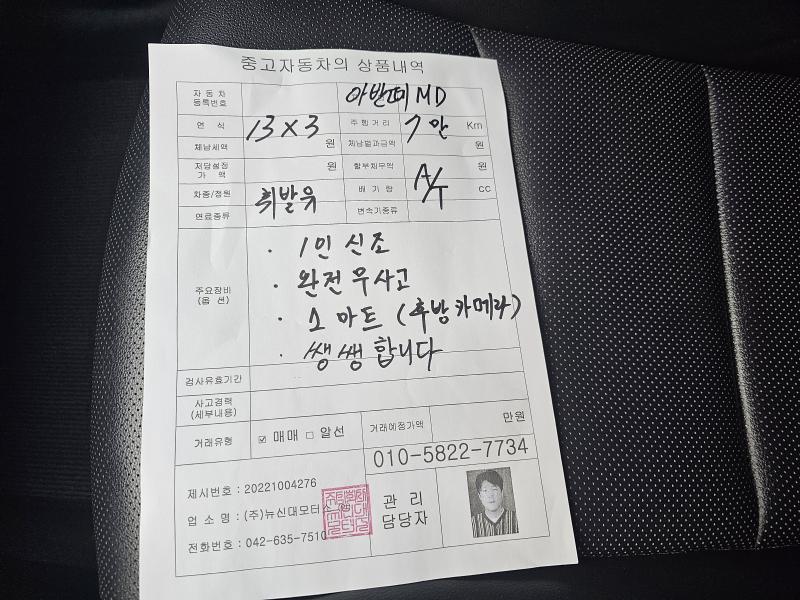 중고자동차의 상품내역
자 동 차
등록번호
아반떼 MD
연 식
13 X 3
주행거리
7만 Km
체납세액
원
체납범과금액
원
저당설정
가 액
원
할부채무액
원
차종/정원
배 기 량
cc
연료종류
휘발유
변속기종류
A/T
주요장비
(옵 션)
· 1인 신조
· 완전 무사고
· 스마트 (후방카메라)
· 쌩쌩합니다
검사유효기간
사고경력
(세부내용)
거래유형
☑ 매매 □ 알선
거래예정가액
만원
010-5822-7734
제시번호 : 20221004276
업 소 명 : (주)뉴신대모터스
전화번호 : 042-635-7510
관 리
담당자